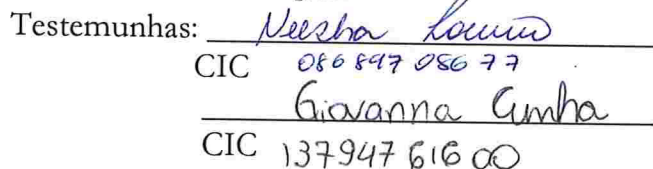 Testemunhas:
CIC 086 897 086 77
Giovanna Cunha
CIC 137947 616 00